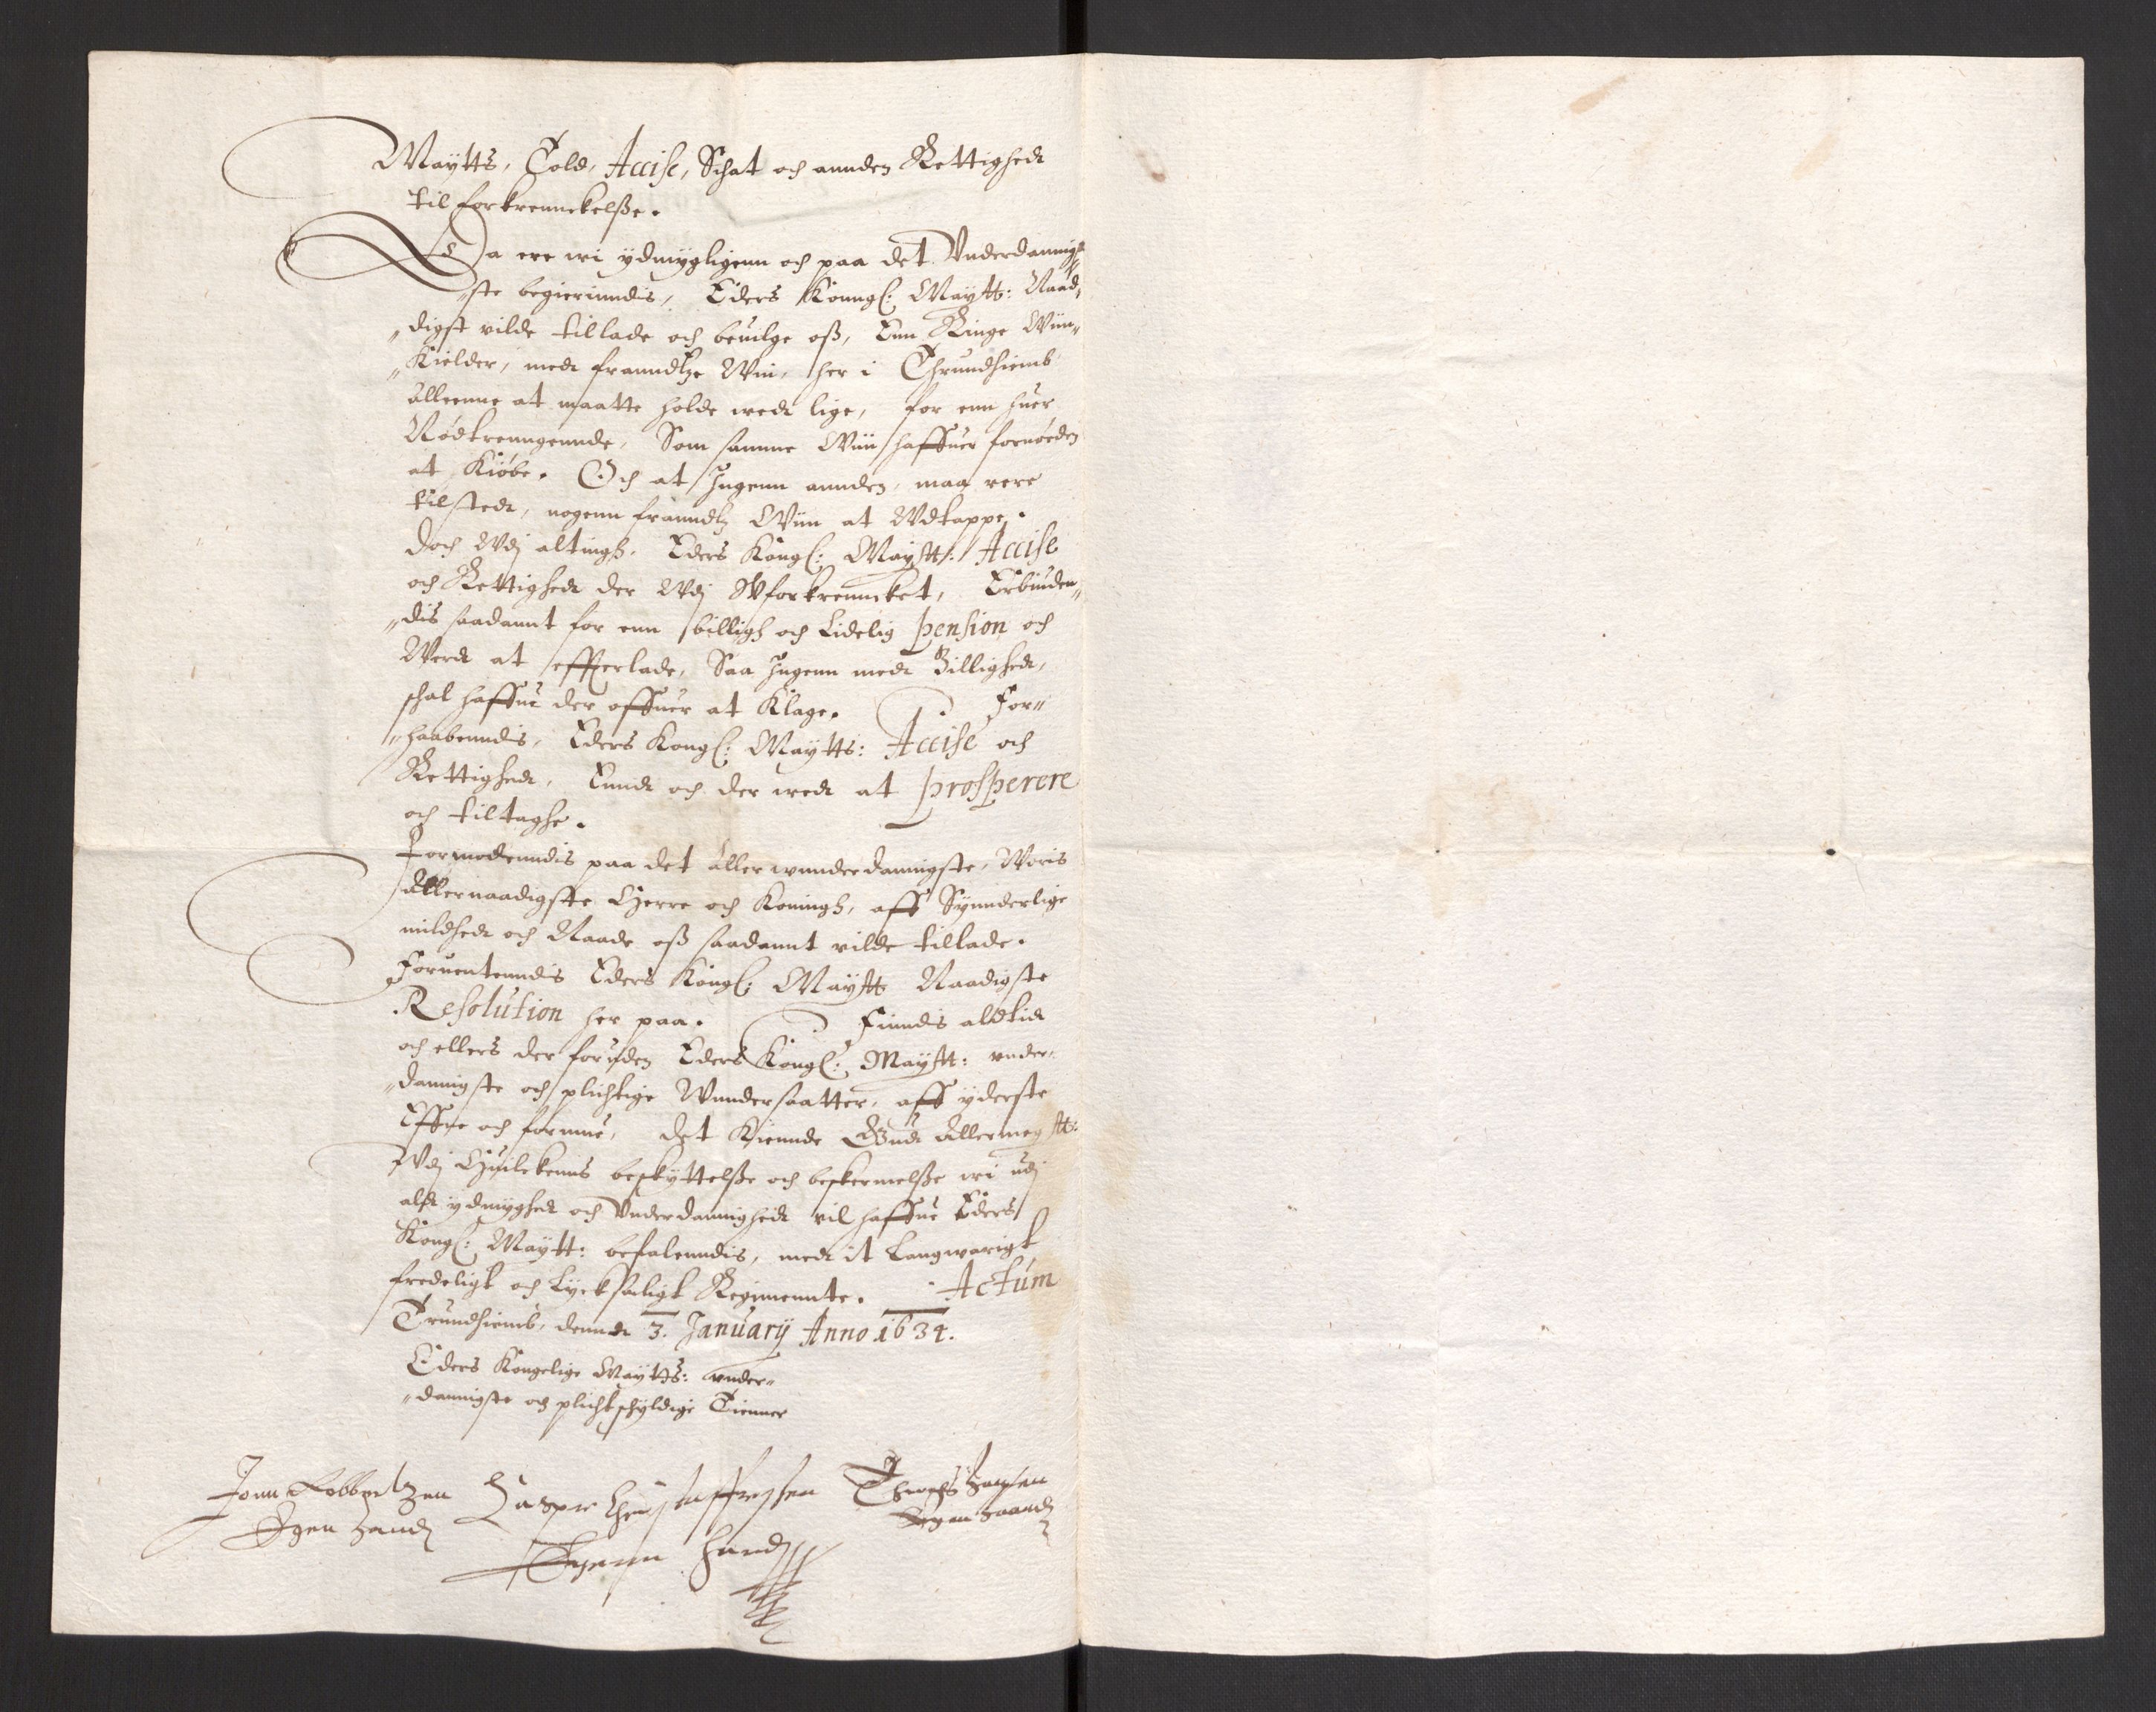 Maÿtts, Told, Accise, Schat och annden Rettighedt
til forkrennckelsße.
Da ere wi ydmygligenn och paa det Vnderdannig„
„ste begierinndis, Eders Konngl: Maÿtt: Naad„
„digst vilde tillade och beuilge oß, Enn Ringe Wiin„
„Kielder, medt franndtze Wiin, her i Thrundhiemb
alleenne at maatte holde wedt lige, for enn huer
Nødtrenngennde, Som samme Wiin haffuer fornøeden
at Kiøbe. Och at Ingenn annden, maa vere
tilstedt, nogenn franndtz Wiin at Wdtappe.
Doch Wdj altingh, Eders Kongl: Maÿtt: Accise
och Rettighedt der Wdj Wforkrenncket, Erbiuden„
„dis saadannt for enn billigh och Lidelig pension och
Werdt at effterlade, Saa Ingenn medt Billighedt,
schal haffue der offuer at Klage. For„
„haabenndis, Eders Kongl: Maÿtts: Accise och
Rettighedt, Enndt och der wedt at prosperere
och tiltaghe.
Formodenndis paa det allerwnnderdannigste, Woris
Allernaadigste Herre och Koningh, aff Synnderlige
mildhedt och Naade oß saadannt vilde tillade.
Foruentenndis Eders Kongl: Maÿtt Naadigste
Resolution her paa. Finndis altidt
och ellers der foruden Eders Kongl: Maÿtt: vnder„
„dannigste och plichtige Wnndersaatter, aff yderste
Effne och formue, det Kiennde Gudt Allermegtt:
Wdj Huilckenns beskyttelsße och beskermelsße wi udj
alt ydmyghedt och Vnderdannighedt vil haffue Eders
Kongl: Maÿtt: befalenndis, medt it Langwarigt
fredeligt och Lycksaligt Regimennte. Actum
Trundhiemb, denndt 3. Januarij Anno 1634.
Eders Kongelige Maÿtts: vnder„
„dannigste och plichtschyldige Tienner
Jonn Robbertzen Casper Christoffersen hansen
Egen handt Egenn handt Egen haandt